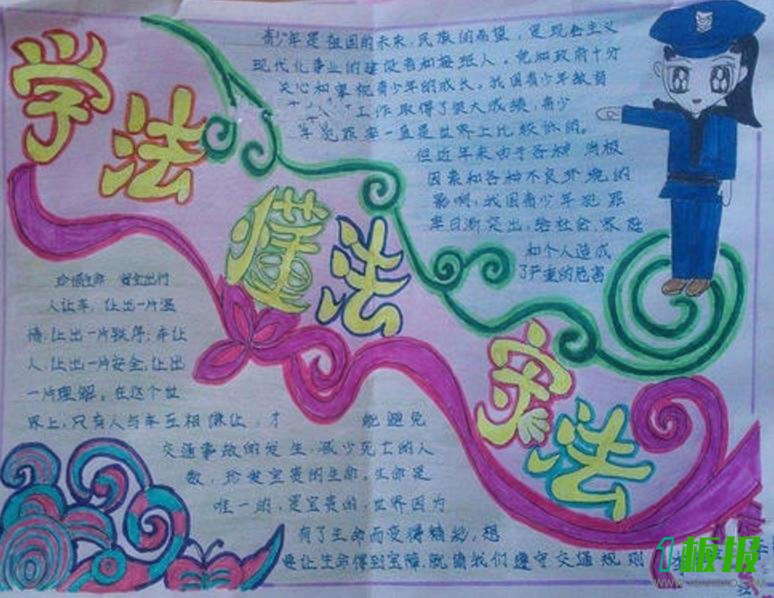 学法
懂法
守法
青少年是祖国的未来,民族的希望,是现会主义
现代化事业的建设者和接班人。党和政府十分
关心和重视青少年的成长。我国青少年教育
工作取得了很大成绩,青少
年犯罪率一直是世界上比较低的。
但近年来由于各种消极
因素和各种不良环境的
影响,我国青少年犯罪
率日渐突出,给社会、家庭
和个人造成
了严重的危害
珍惜生命 安全出行
人让车,让出一片温
情;让出一片秩序;车让
人,让出一片安全,让出
一片理解。在这个世
界上,只有人与车互相谦让,才 能避免
交通事故的发生,减少死亡的人
数,珍爱宝贵的生命。生命是
唯一的,是宝贵的,世界因为
有了生命而变得精彩,想
要让生命得到宝障,就请我们遵守交通规则
1板报
WWW.1BANBAO.COM